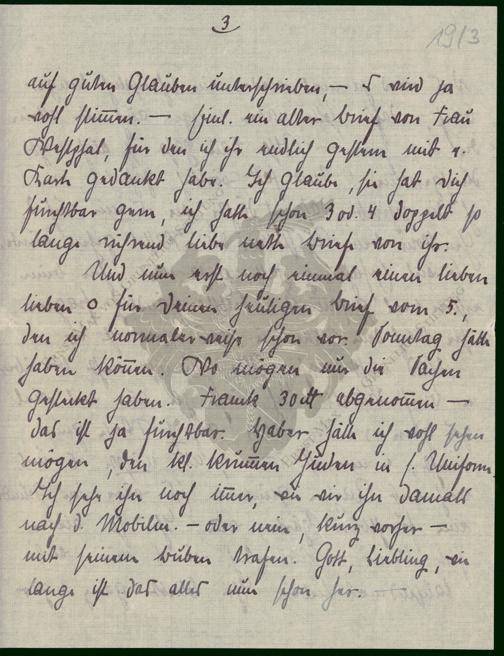 3
19/3
auf guten Glauben unterschrieben, – es wird ja
wohl stimmen. – Einl. ein alter Brief von Frau
Westphal, für den ich ihr endlich gestern mit e.
Karte gedankt habe. Ich glaube, sie hat Dich
furchtbar gern, ich hatte schon 3 od. 4 doppelt so
lange rührend liebe nette Briefe von ihr.
Und nun erst noch einmal einen lieben
lieben o für Deinen heutigen Brief vom 5.,
den ich normalerweise schon vor. Sonntag hätte
haben können. Wo mögen nur die Sachen
gesteckt haben. Franck 30 M abgenommen –
das ist ja furchtbar. Haber hätte ich wohl sehen
mögen, den kl. krummen Juden in s. Uniform.
Ich sehe ihn noch immer, wie wir ihn damals
nach d. Mobilm. – oder nein, kurz vorher –
mit seinem Buben trafen. Gott, Liebling, wie
lange ist das alles nun schon her.